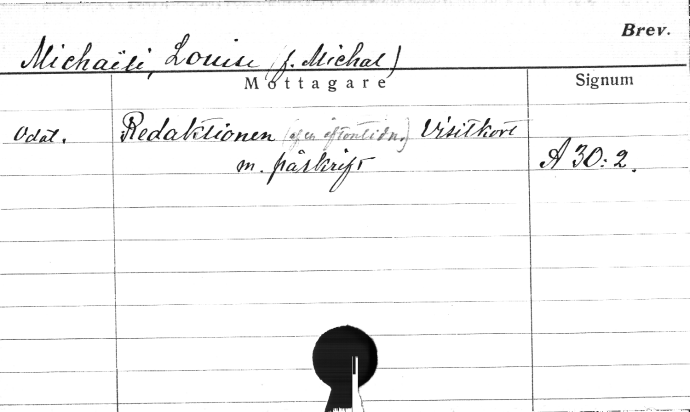 Brev.
Michaëli, Louise (f. Michal)
Mottagare Signum
Odat. Redaktionen (af en aftontidn.) Visitkort
m. påskrift A 30:2.